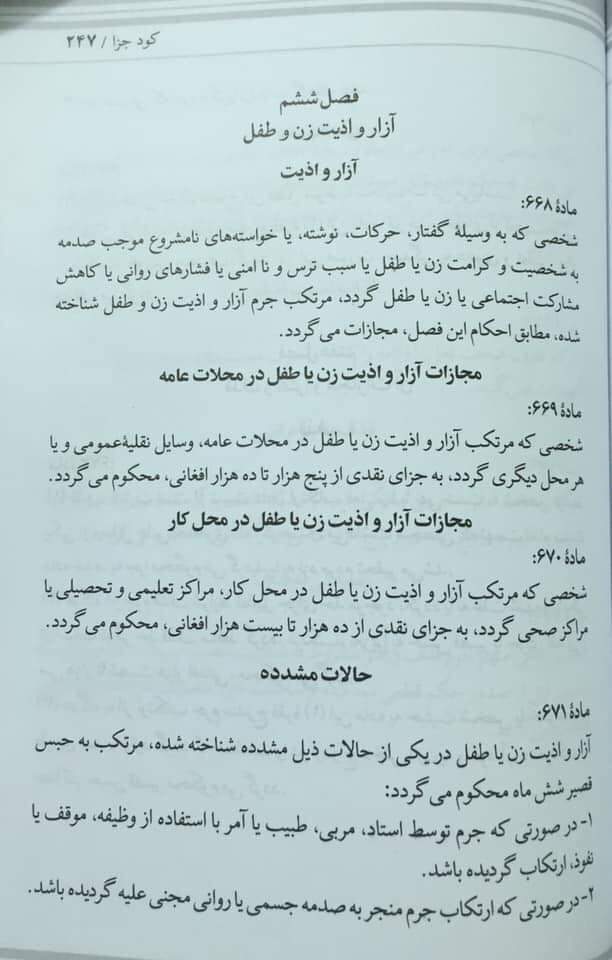 کود جزا / ۲۴۷
فصل ششم
آزار و اذیت زن و طفل
آزار و اذیت
مادۀ ۶۶۸:
شخصی که به وسیلۀ گفتار، حرکات، نوشته، یا خواسته‌های نامشروع موجب صدمه
به شخصیت و کرامت زن یا طفل یا سبب ترس و نا امنی یا فشارهای روانی یا کاهش
مشارکت اجتماعی یا زن یا طفل گردد، مرتکب جرم آزار و اذیت زن و طفل شناخته
شده، مطابق احکام این فصل، مجازات می‌گردد.
مجازات آزار و اذیت زن یا طفل در محلات عامه
مادۀ ۶۶۹:
شخصی که مرتکب آزار و اذیت زن یا طفل در محلات عامه، وسایل نقلیۀ عمومی و یا
هر محل دیگری گردد، به جزای نقدی از پنج هزار تا ده هزار افغانی، محکوم می‌گردد.
مجازات آزار و اذیت زن یا طفل در محل کار
مادۀ ۶۷۰:
شخصی که مرتکب آزار و اذیت زن یا طفل در محل کار، مراکز تعلیمی و تحصیلی یا
مراکز صحی گردد، به جزای نقدی از ده هزار تا بیست هزار افغانی، محکوم می‌گردد.
حالات مشدده
مادۀ ۶۷۱:
آزار و اذیت زن یا طفل در یکی از حالات ذیل مشدده شناخته شده، مرتکب به حبس
قصیر شش ماه محکوم می‌گردد:
۱- در صورتی که جرم توسط استاد، مربی، طبیب یا آمر با استفاده از وظیفه، موقف یا
نفوذ، ارتکاب گردیده باشد.
۲- در صورتی که ارتکاب جرم منجر به صدمه جسمی یا روانی مجنی علیه گردیده باشد.